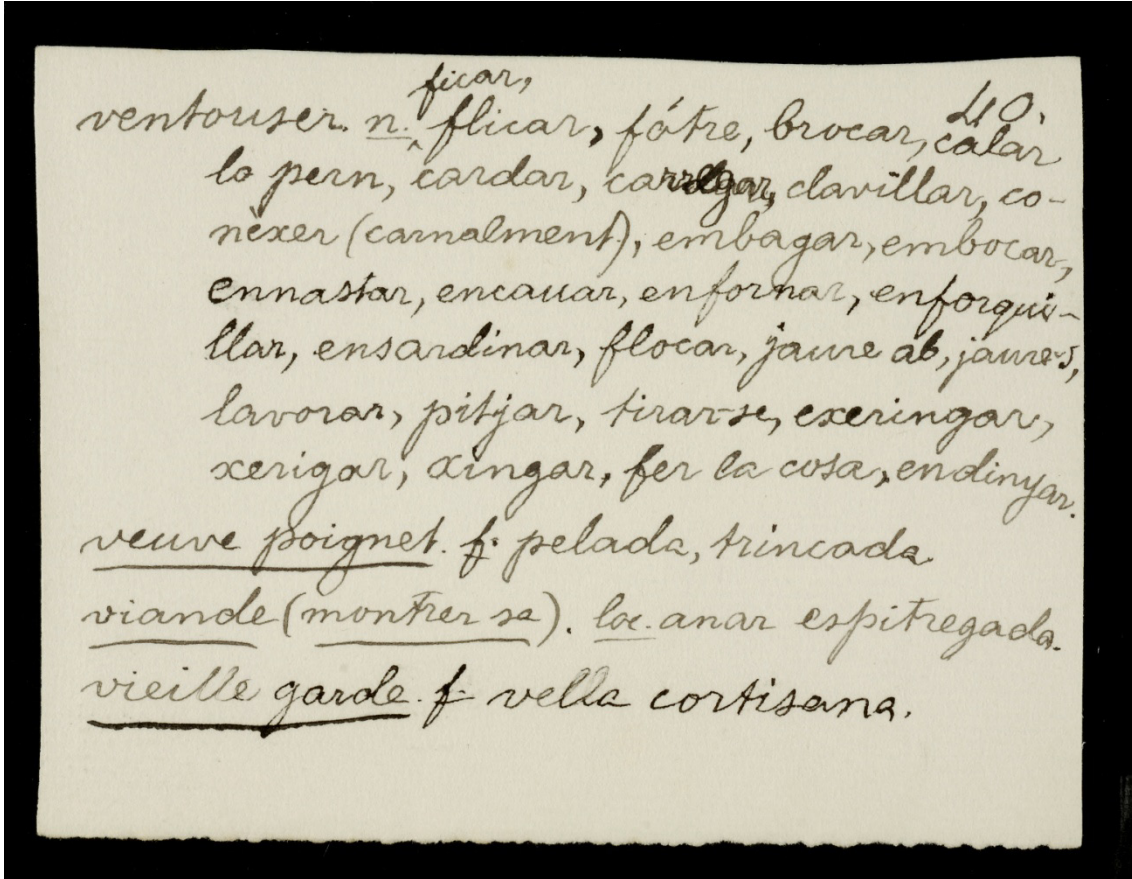 ficar,
40.
ventouser. n. flicar, fótre, brocar, calar
lo pern, cardar, carregar, clavillar, co-
nèxer (carnalment), embagar, embocar,
ennastar, encauar, enfornar, enforqui-
llar, ensardinar, flocar, jaure ab, jaure's,
lavorar, pitjar, tirar-se, exeringar,
xerigar, xingar, fer la cosa, endinyar.
veuve poignet. f. pelada, trincada
viande (montrer sa). loc. anar espitregada.
vieille garde. f. vella cortisana.